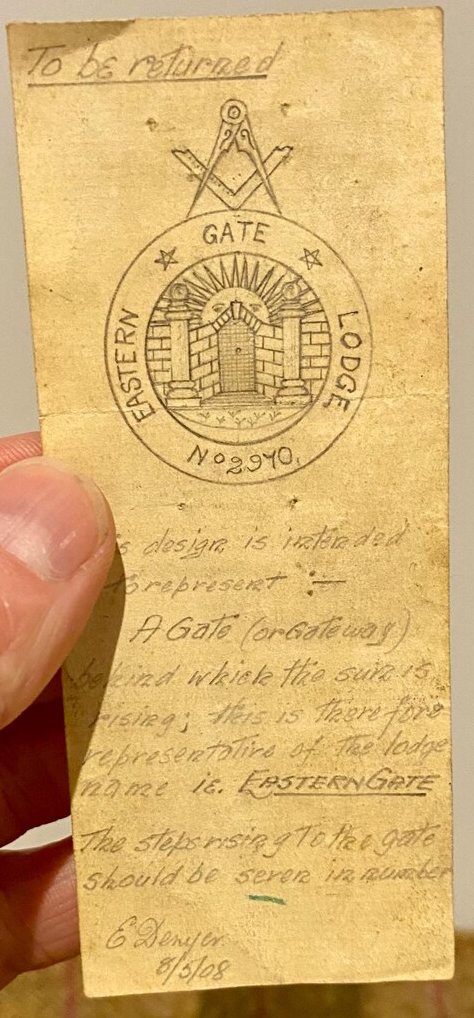 To be returned
GATE
EASTERN
LODGE
No 2970.
is design is intended
to represent —
A Gate (or Gateway)
behind which the sun is
rising; this is therefore
representative of the lodge
name ie. EASTERN GATE
The steps rising To the gate
should be seven in number
E Denyer.
8/5/08